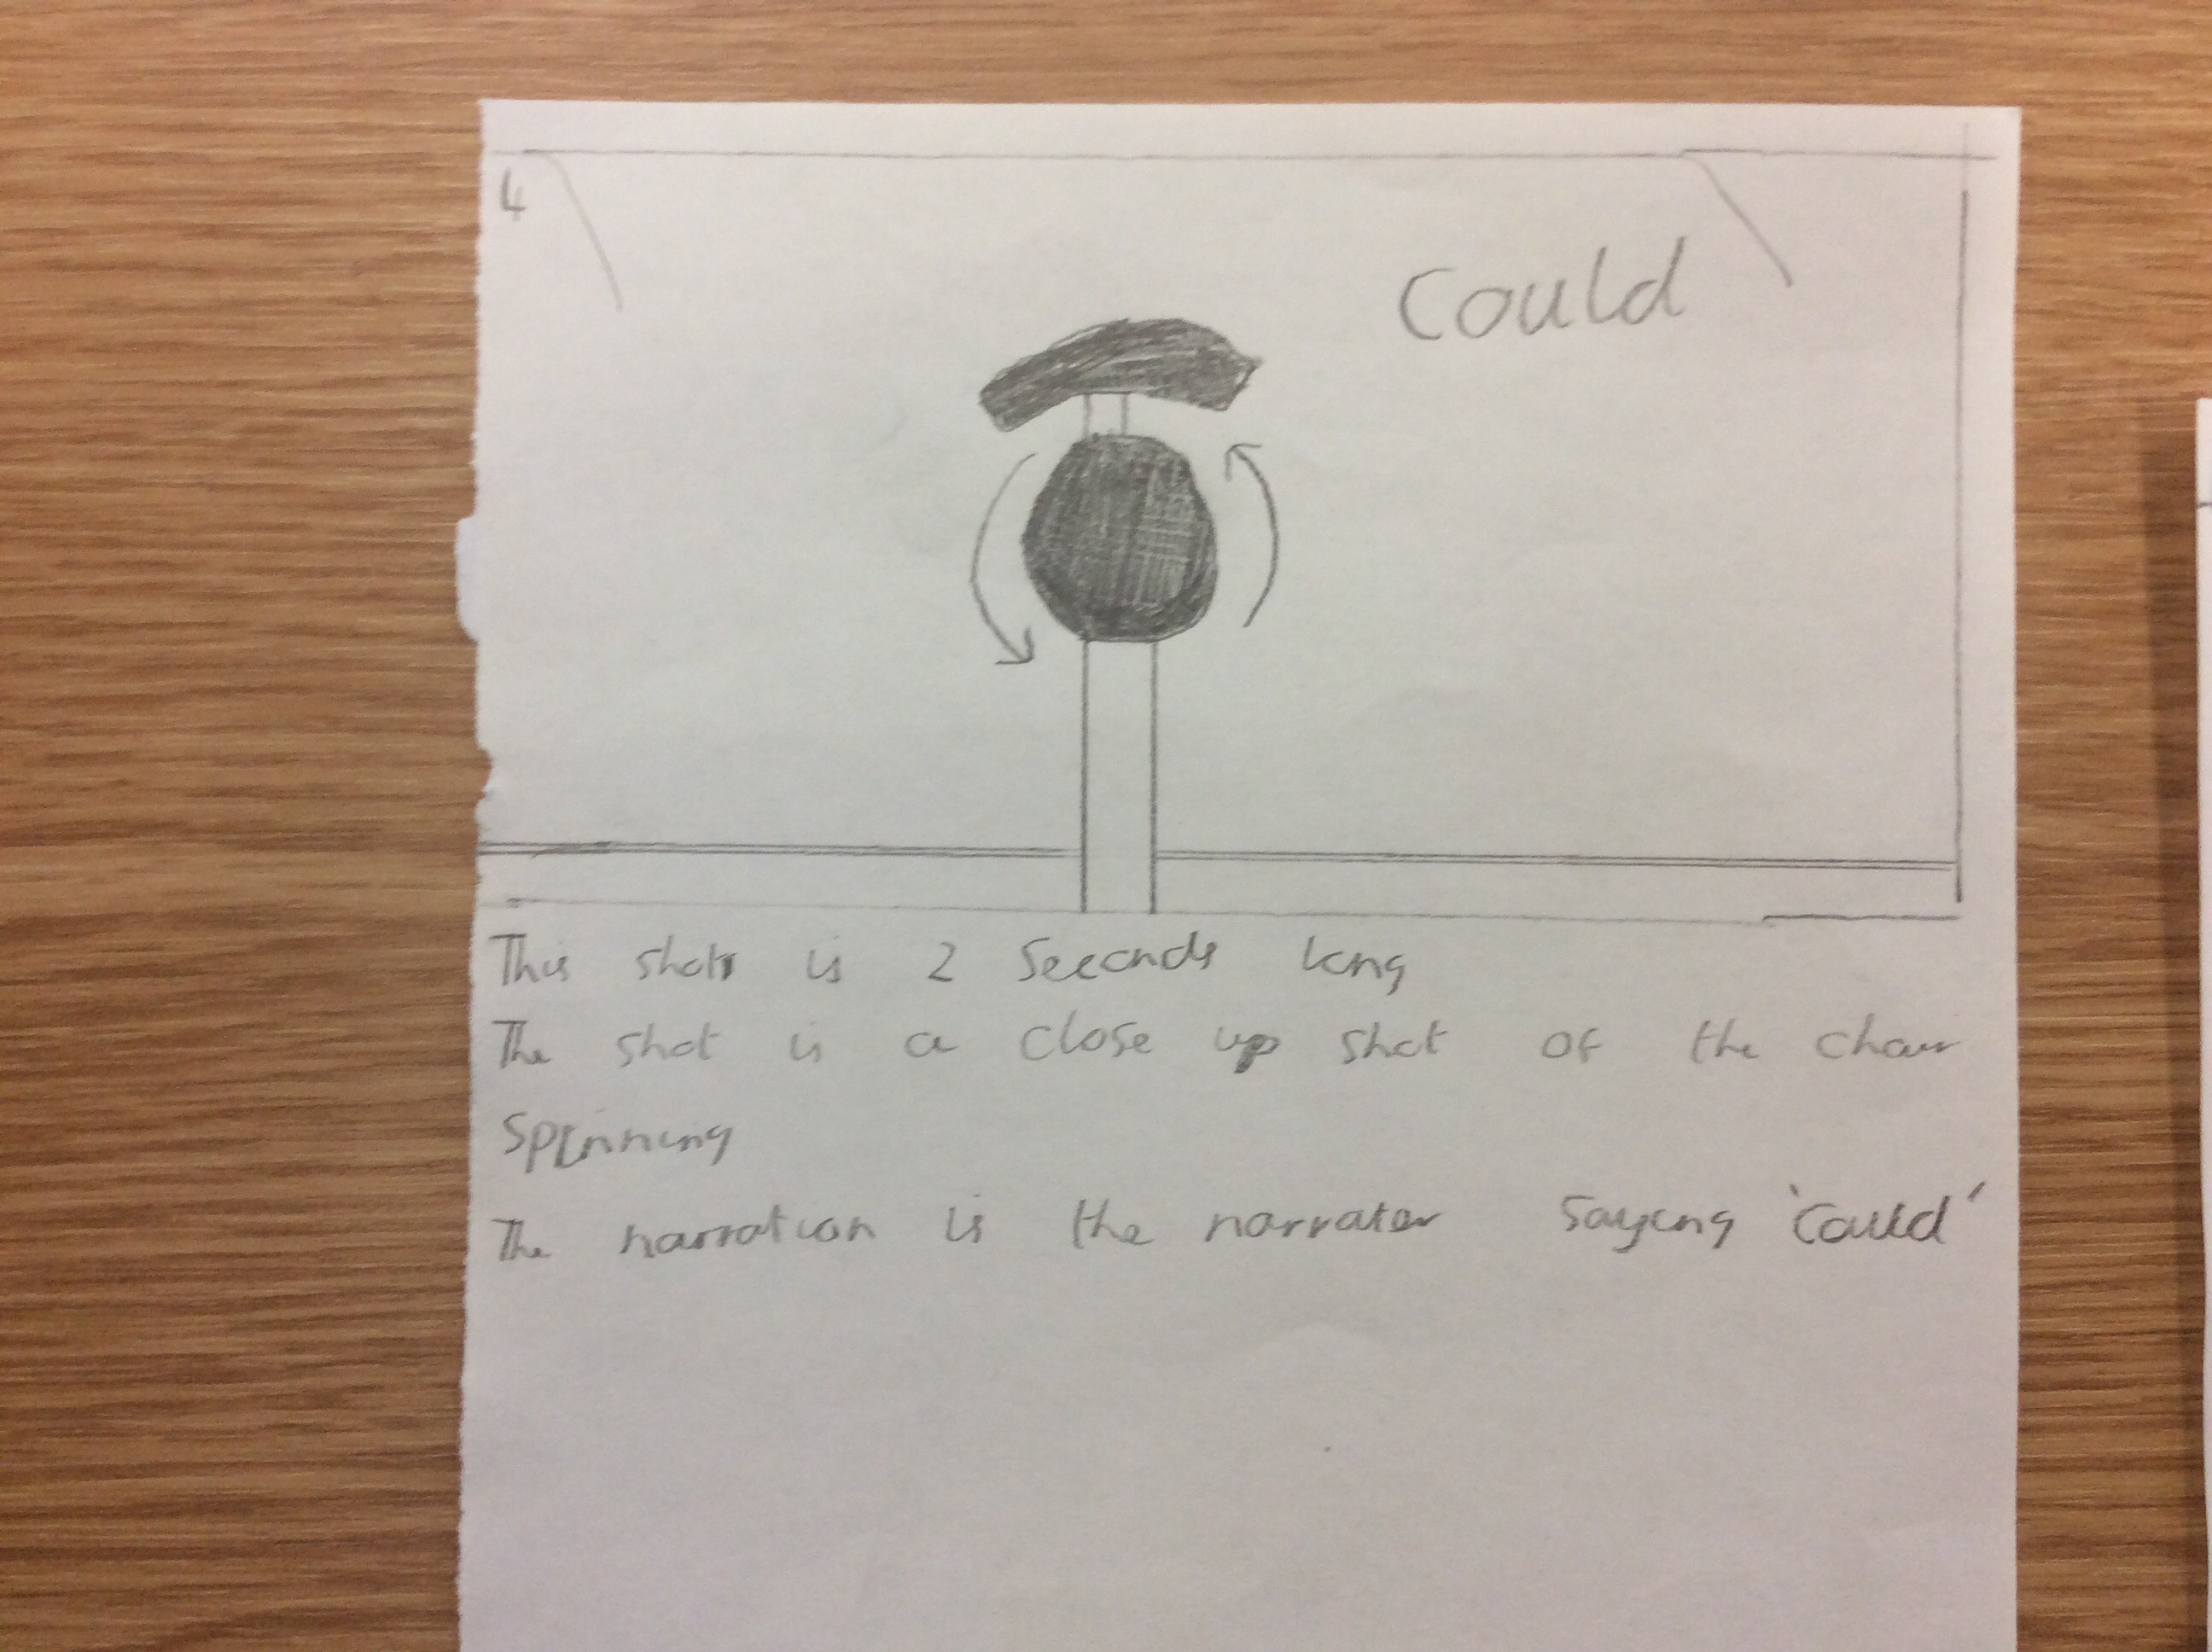 4
Could
This shot is 2 Seconds long
The shot is a close up shot of the chair
Spinning
The narration is the narrator Saying 'Could'